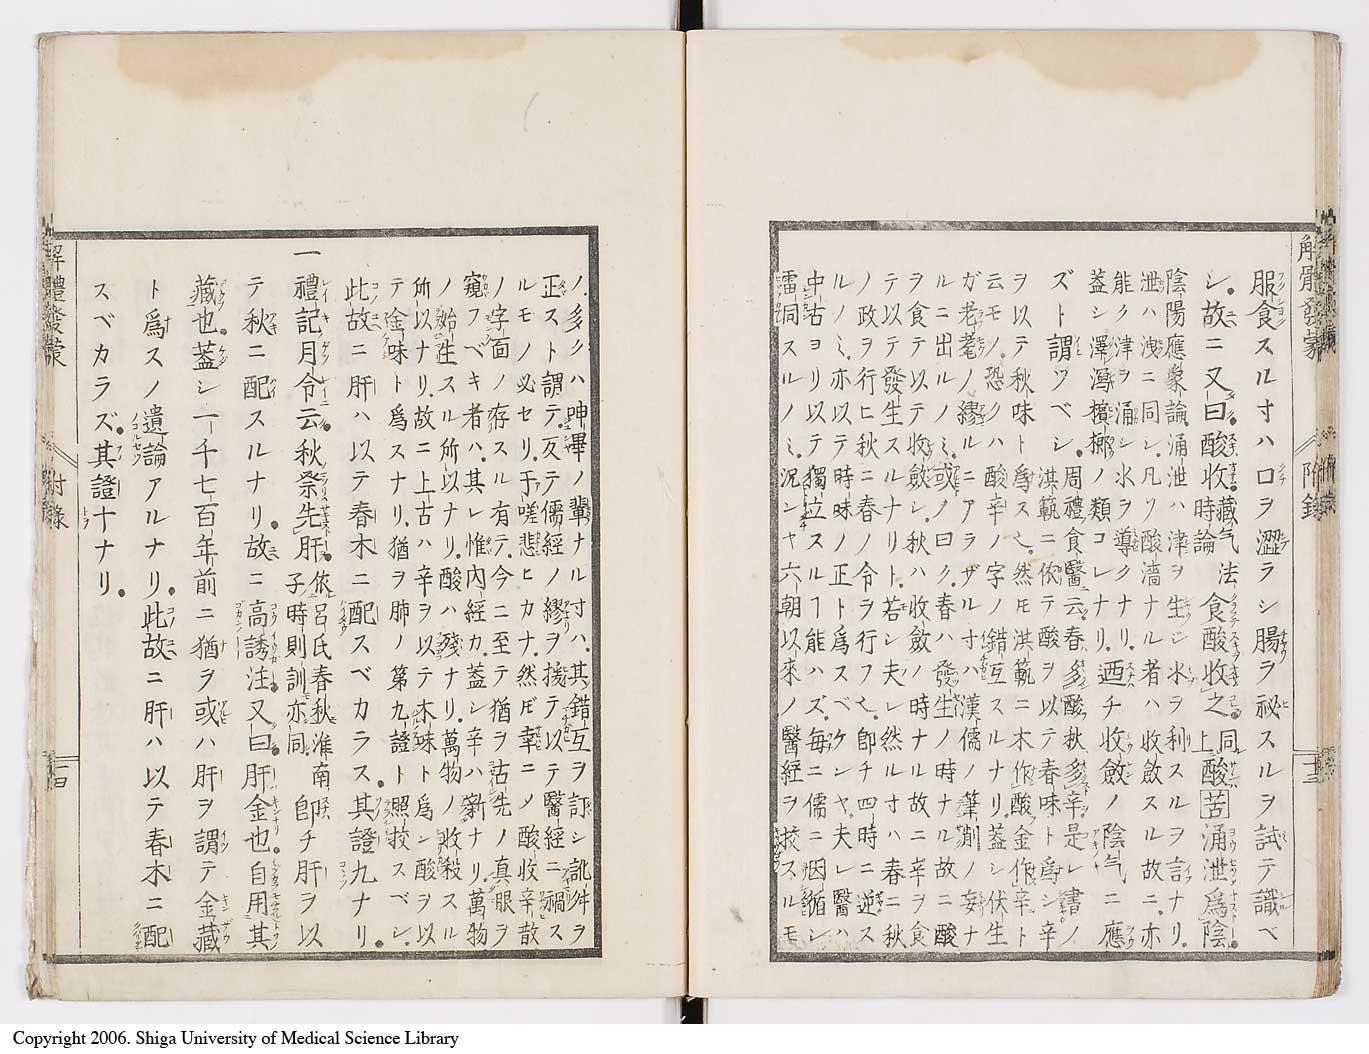 解體發蒙 附錄 十三
服食スル寸ハ口ヲ澀ラシ腸ヲ祕スルヲ試テ識ベ
シ。故ニ又曰。酸收。藏气法時論 食酸收之 同上 酸苦涌泄爲陰
陰陽應象論 涌泄ハ津ヲ生シ水ラ利スルヲ言ナリ。
泄ハ洩ニ同シ。凡ソ酸濇ナル者ハ收斂スル故ニ。亦
能ク津ヲ涌シ水ヲ導クナリ。廼チ收斂ノ陰气ニ應
ズト謂ツベシ。周禮食醫云。春多酸秋多辛是レ書ノ
洪範ニ依テ酸ヲ以テ春味ト爲シ辛
ヲ以テ秋味ト爲ス之。然ㇳモ洪範ニ木作酸金作辛ト
云モノ。恐クハ酸辛ノ字ノ錯互スルナリ。蓋シ伏生
ガ老耄ノ繆ルニアラザル寸ハ漢儒ノ筆削ノ妄ナ
ルニ出ルノミ。或ノ曰ク。春ハ發生ノ時ナル故ニ酸
ヲ食テ以テ收斂シ。秋ハ收斂ノ時ナル故ニ辛ヲ食
テ以テ發生スルナリト。若シ夫レ然ル寸ハ春ニ秋
ノ政ヲ行ヒ秋ニ春ノ令ヲ行フ也。卽チ四時ニ逆ス
ルノミ。亦以テ時味ノ正ト爲スベケンヤ。夫レ醫ハ
中古ヨリ以テ獨立スルヿ能ハズ。每ニ儒ニ因循シ
雷同スルノミ。況ンヤ六朝以來ノ醫經ヲ挍スルモ
ノ。多クハ呻畢ノ輩ナル寸ハ。其錯互ヲ訂シ訛舛ラ
正スト謂テ。反テ儒經ノ繆ヲ援テ以テ醫經ニ禍ス
ルモノ必セリ。于嗟悲ヒカナ。然ㇳモ幸ニノ酸收辛散
ノ字面ノ存スル有テ。今ニ至テ猶ヲ古先ノ真眼ヲ
窺フベキ者ハ。其レ惟內經カ。蓋シ辛ハ新ナリ。萬物
ノ始生スル所以ナリ。酸ハ殘ナリ。萬物ノ收殺スル
所以ナリ。故ニ上古ハ辛ヲ以テ木味ト爲シ酸ヲ以
テ金味ト爲スナリ。猶ヲ肺ノ第九證ト照挍スベシ。
此故ニ肝ハ以テ春木ニ配スベカラス。其證九ナリ。
一禮記月令云。秋祭先肝。依呂氏春秋淮南子時則訓亦同 卽チ肝ヲ以
テ秋ニ配スルナリ。故ニ高誘注。又曰。肝金也。自用其
藏也。葢シ一千七百年前ニ猶ヲ或ハ肝ヲ謂テ金藏
ト爲スノ遺論アルナリ。此故ニ肝ハ以テ春木ニ配
スベカラズ。其證十ナリ。
解體發蒙 附錄
Copyright 2006. Shiga University of Medical Science Library